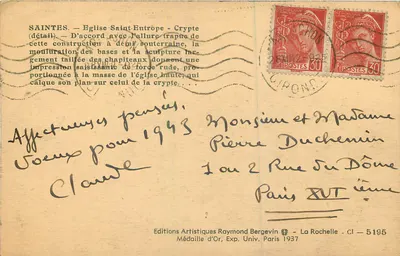 SAINTES. — Eglise Saint Eutrope - Crypte
(détail). — D'accord avec l'allure trapue de
cette construction à demi souterraine, la
mouluration des bases et la sculpture lar-
gement taillée des chapiteaux donnent une
impression saisissante de force rude, pro-
portionnée à la masse de l'église haute, qui
calque son plan sur celui de la crypte.
GIRONDE
POSTES
POSTES
Affectueuses pensées,
Voeux pour 1943
Claude
Monsieur et Madame
Pierre Duchemin
1 ou 2 Rue du Dôme
Paris XVI ième
Editions Artistiques Raymond Bergevin - La Rochelle - Cl - 5195
Médaille d'Or, Exp. Univ. Paris 1937